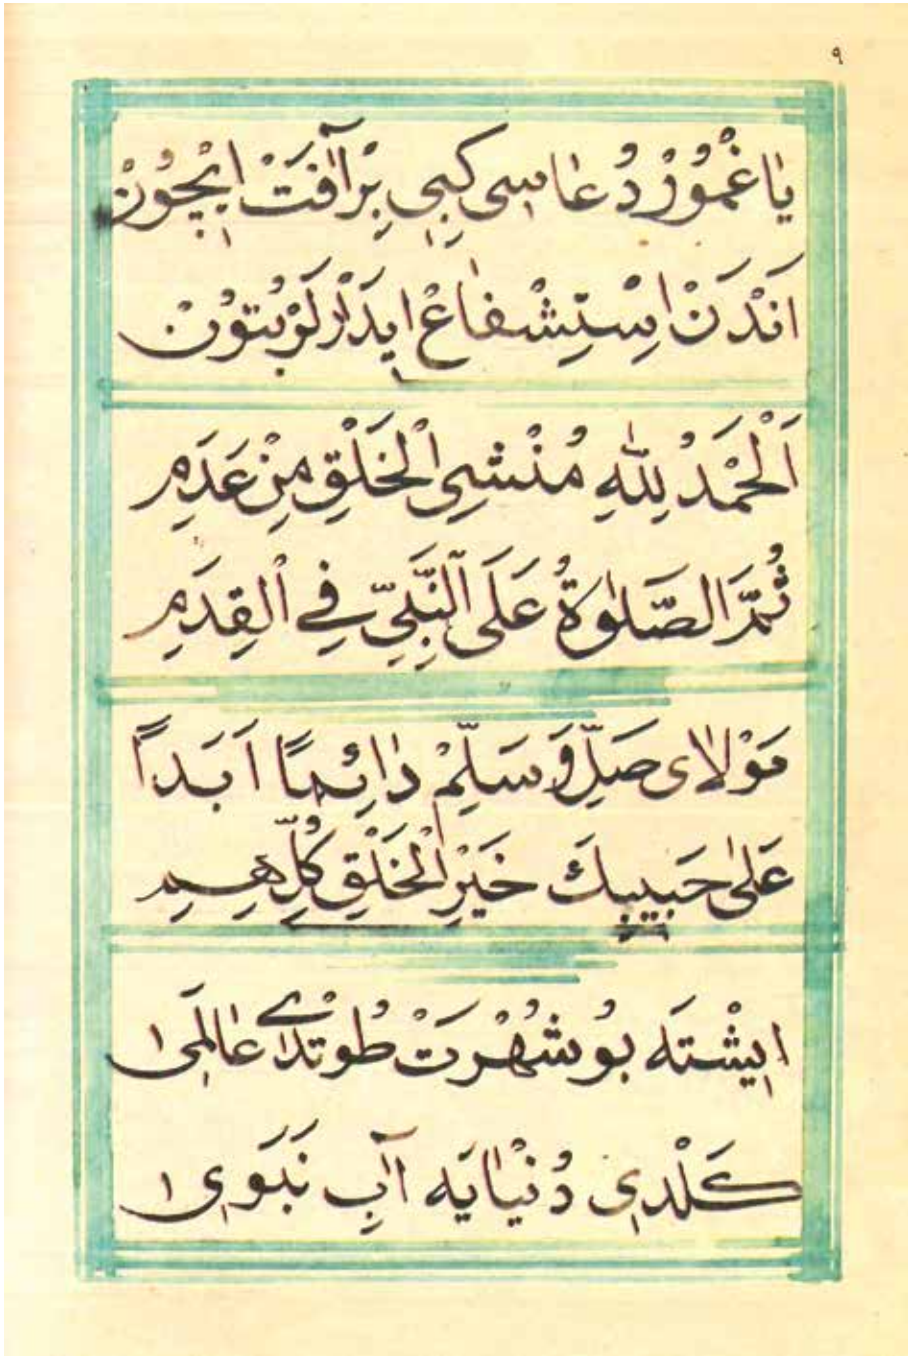 ٩
يَاغْمُورْ دُعَاسِى كِبِى بِرْ آفَتْ اِيچُونْ
اَنْدَنْ اِسْتِشْفَاعْ اِيدَرْلَرْ بُتُونْ
اَلْحَمْدُ لِلّٰهِ مُنْشِىِ الْخَلْقِ مِنْ عَدَمِ
ثُمَّ الصَّلٰوةُ عَلَى النَّبِيِّ فِي الْقِدَمِ
مَوْلَاىَ صَلِّ وَ سَلِّمْ دَائِمًا اَبَدًا
عَلٰى حَبِيبِكَ خَيْرِ الْخَلْقِ كُلِّهِمِ
اِيشْتَه بُو شُهْرَتْ طُوتْدِى عَالَمِى ١
كَلْدِى دُنْيَايَه آبِ نَبَوِى ١